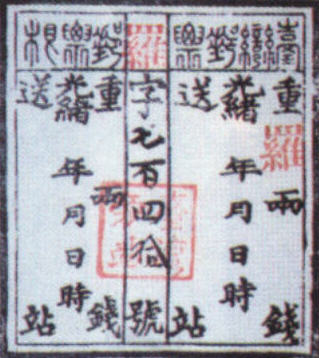 臺灣郵票
重兩錢
羅
光緒年月日時
送站
羅
字七百四拾號
郵票根
重兩錢
光緒年月日時
送站